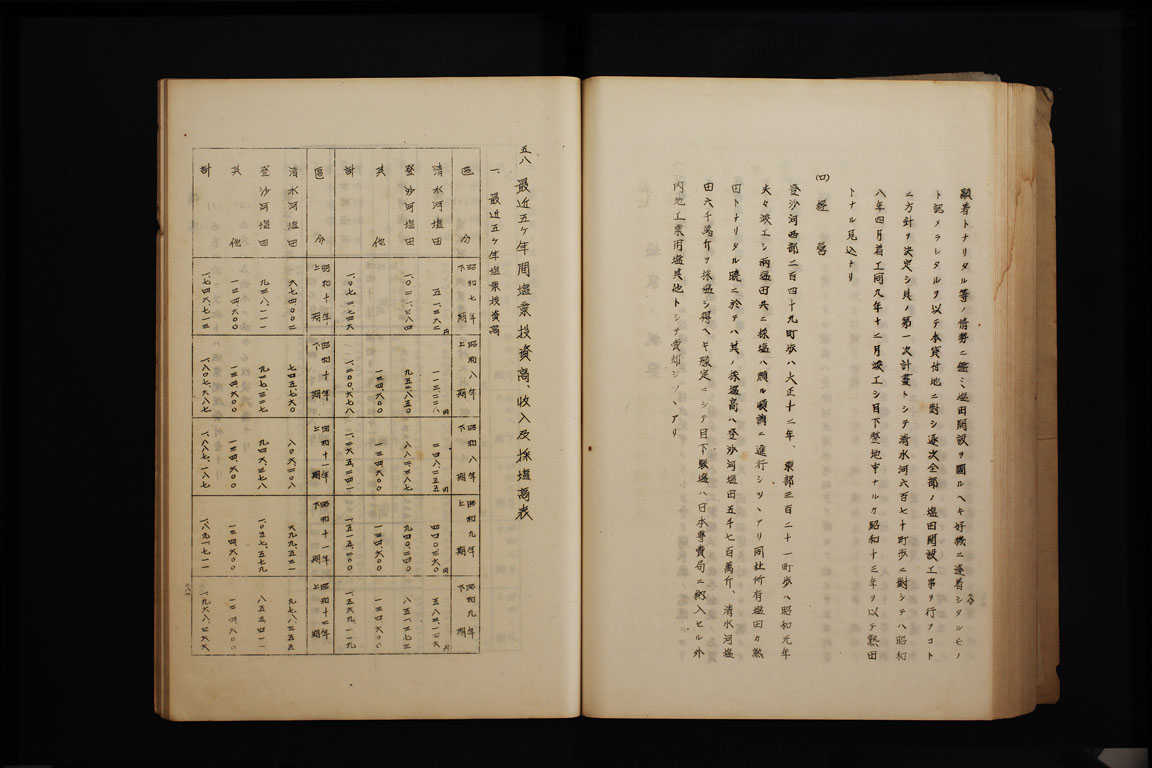 顕着トナリタル等ノ情勢ニ鑑ミ塩田開設ヲ圖ルヘキ好機ニ逢着シタルモノ
ト認メラレタルヲ以テ本貸付地ニ對シ逐次全部ノ塩田開設工事ヲ行フコト
ニ方針ヲ決定シ其ノ第一次計畫トシテ清水河六百七十町歩ニ對シテハ昭和
八年四月着工同九年十二月竣工シ目下整地中ナルカ昭和十三年ヲ以テ熟田
トナル見込ナリ
(ロ) 經営
登沙河西部二百四十九町歩ハ大正十二年、東部三百二十一町歩ハ昭和元年
夫々竣工シ両塩田共ニ採塩ハ頗ル順調ニ進行シツヽアリ同社所有塩田カ熟
田トナリタル暁ニ於テハ其ノ採塩高ハ登沙河塩田五千七百萬斤、清水河塩
田六千萬斤ヲ採塩シ得ヘキ豫定ニシテ目下製塩ハ日本專賣局ニ納入セル外
内地工業用塩其他トシテ賣却シツヽアリ
五八 最近五ヶ年間塩業投資高、收入及採塩高表
一、最近五ヶ年塩業投資高
區分 昭和七年下期 昭和八年上期 昭和八年下期 昭和九年上期 昭和九年下期
清水河塩田 五一、三六二円 一一三、二二八円 円 四四〇、三六〇円 円
登沙河塩田 一、〇二一、三八四 九五二、八五〇 八八二、三八七 九四〇、二四〇 八五一、三七三
其他 一三四、六〇〇 一三四、六〇〇 一三四、六〇〇 一三四、六〇〇
計 一、〇七二、七四六 一、二〇〇、六七八
區分 昭和十年上期 昭和十年下期 昭和十一年上期 昭和十一年下期 昭和十二年上期
清水河塩田 六七四、〇〇二 七四五、七六〇 八〇六、二〇八 六九九、五三二 九七八、二五五
登沙河塩田 九三八、一一一 九二七、三二七 九四六、三七八 一、〇五七、五七九 八五五、四一一
其他 一三四、六〇〇 一三四、六〇〇 一三四、六〇〇 一三四、六〇〇 一三四、六〇〇
計 一、七四六、七一三 一、八〇七、六八七 一、八八七、一八七 一、八九一、七一一 一、九六八、二六六